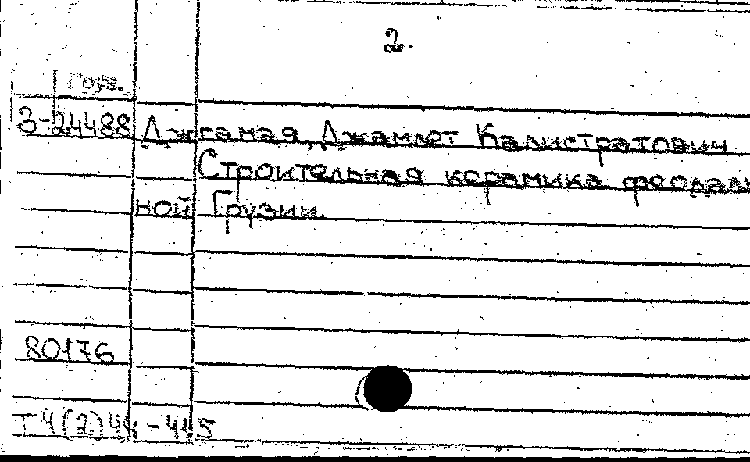 2.
Груз.
3-24488 Джгамая, Джамлет Калистратович
Строительная керамика феодаль
ной Грузии.
80176